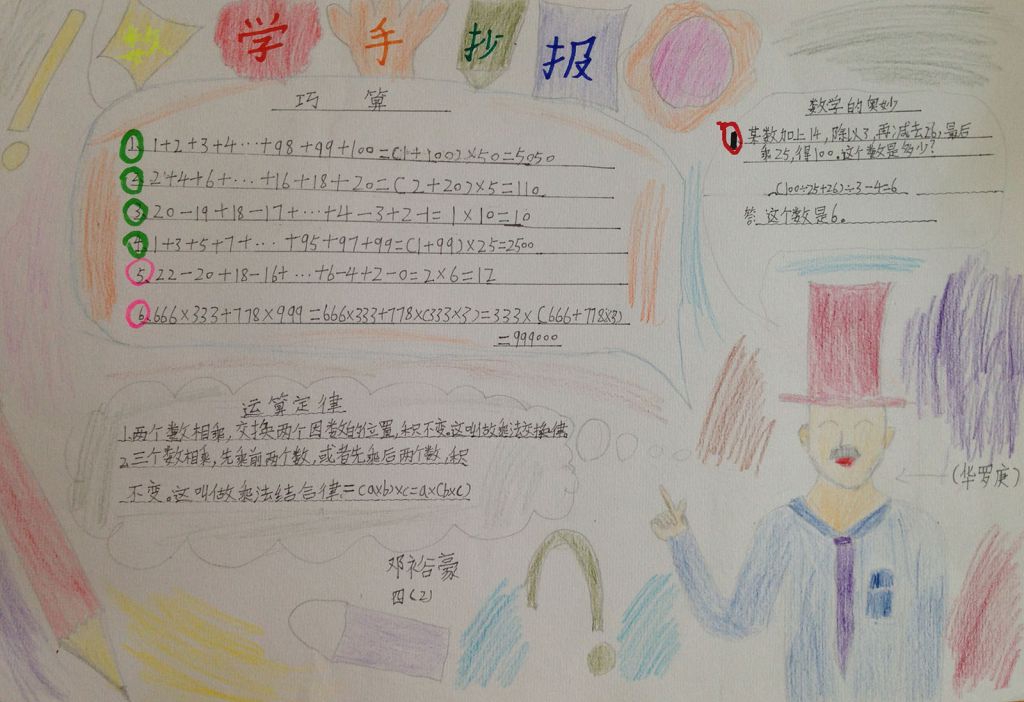 数学手抄报
巧 算
1. 1+2+3+4…+98+99+100=(1+100)×50=5050
2. 2+4+6+…+16+18+20=(2+20)×5=110
3. 20-19+18-17+…+4-3+2-1=1×10=10
4. 1+3+5+7+…+95+97+99=(1+99)×25=2500
5. 22-20+18-16+…+6-4+2-0=2×6=12
6. 666×333+778×999=666×333+778×(333×3)=333×(666+778×3)
=999000
数学的奥妙
1 某数加上14,除以3,再减去26,最后
乘25,得100。这个数是多少?
(100÷25+26)÷3-4=6
答这个数是6。
运算定律
1.两个数相乘,交换两个因数的位置,积不变。这叫做乘法交换律。
2.三个数相乘,先乘前两个数,或者先乘后两个数,积
不变。这叫做乘法结合律=(a×b)×c=a×(b×c)
(华罗庚)
邓裕豪
四(2)